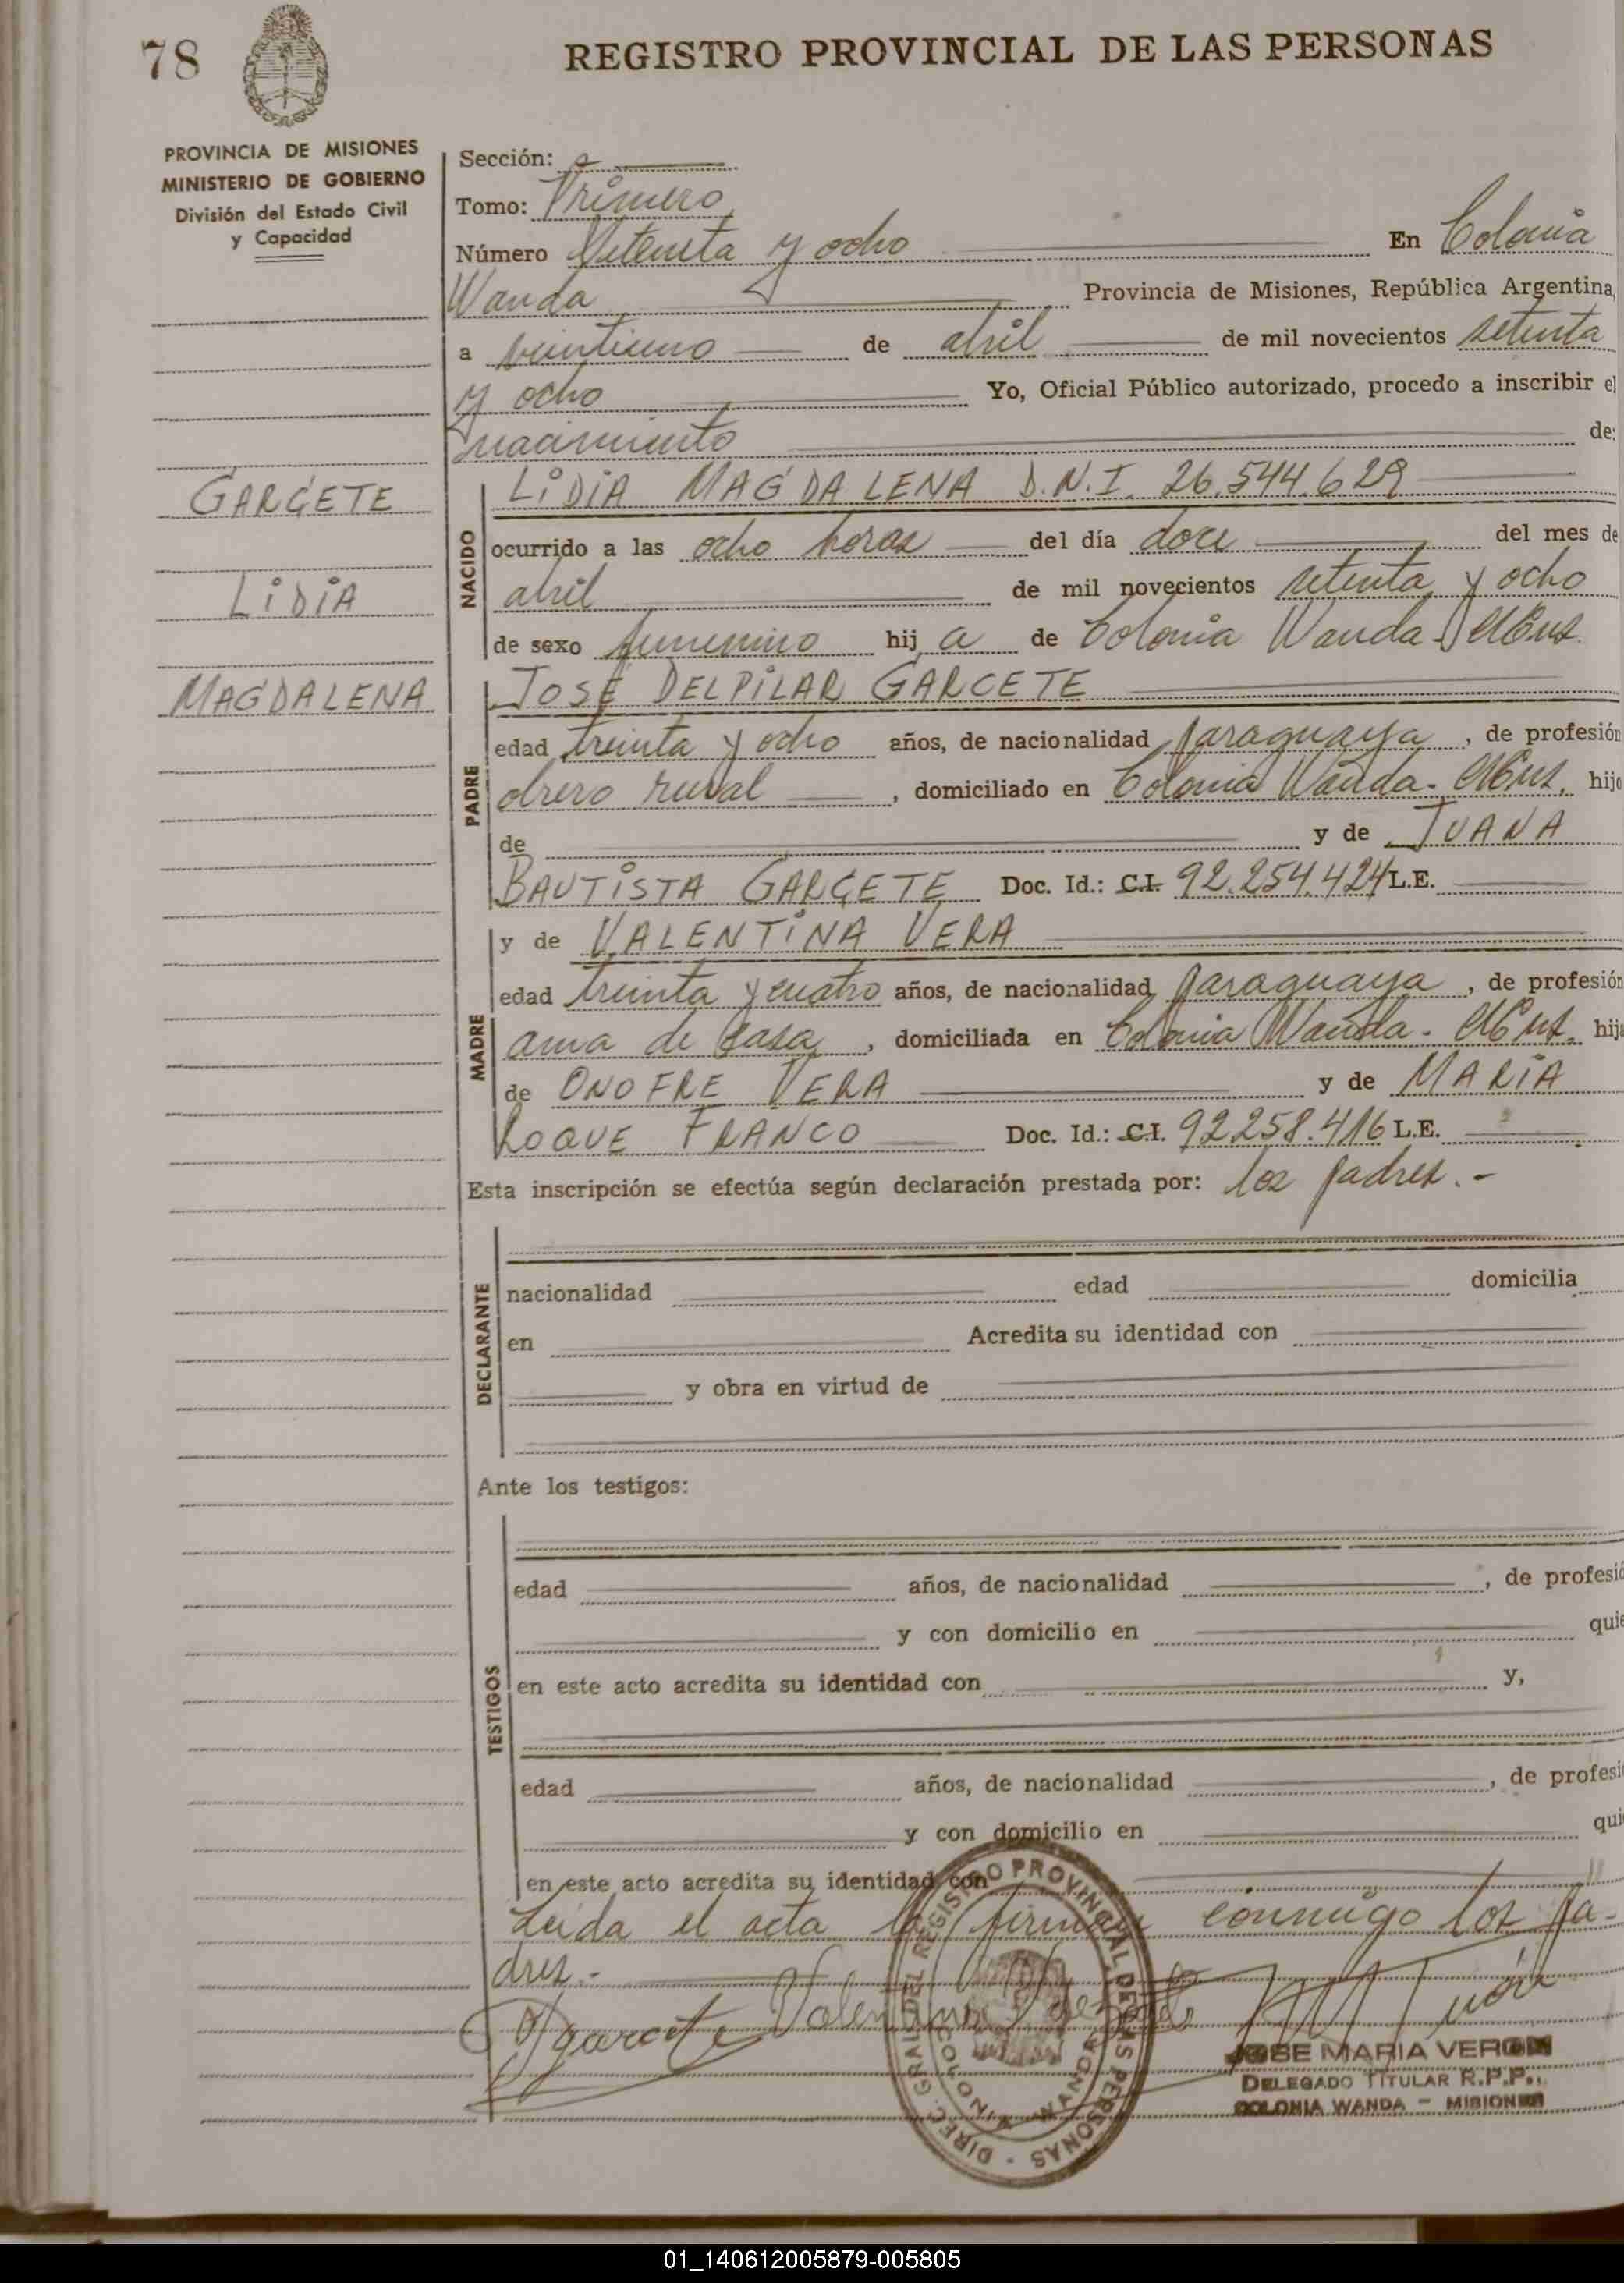 78
REGISTRO PROVINCIAL DE LAS PERSONAS
PROVINCIA DE MISIONES
MINISTERIO DE GOBIERNO
División del Estado Civil
y Capacidad
Sección:
Tomo: Primero
Número Setenta y ocho En Colonia
Wanda Provincia de Misiones, República Argentina,
a veintiuno de abril de mil novecientos setenta
y ocho Yo, Oficial Público autorizado, procedo a inscribir el
nacimiento de:
GARCETE
LIDIA
MAGDALENA
NACIDO
LIDIA MAGDALENA D.N.I. 26.544.629
ocurrido a las ocho horas del día doce del mes de
abril de mil novecientos setenta y ocho
de sexo femenino hij a de Colonia Wanda -
PADRE
JOSÉ DELPILAR GARCETE
edad treinta y ocho años, de nacionalidad paraguaya, de profesión
obrero rural, domiciliado en Colonia Wanda - hijo
de y de JUANA
BAUTISTA GARCETE Doc. Id.: C.I. 92.254.424 L.E.
MADRE
y de VALENTINA VERA
edad treinta y cuatro años, de nacionalidad paraguaya, de profesión
ama de casa, domiciliada en Colonia Wanda - hija
de ONOFRE VERA y de MARIA
ROQUE FRANCO Doc. Id.: C.I. 92258.416 L.E.
Esta inscripción se efectúa según declaración prestada por: los padres.-
DECLARANTE
nacionalidad edad domicilia
en Acredita su identidad con
y obra en virtud de
Ante los testigos:
TESTIGOS
edad años, de nacionalidad , de profesió
y con domicilio en quie
en este acto acredita su identidad con y,
edad años, de nacionalidad , de profesi
y con domicilio en qui
en este acto acredita su identidad con
Leida el acta la firman conmigo los pa-
dres.-
garcete Valentina
DIREC. GRAL. DEL REGISTRO PROVINCIAL DE LAS PERSONAS
WANDA
JOSE MARIA VERON
DELEGADO TITULAR R.P.P.
COLONIA WANDA - MISIONES
01_140612005879-005805